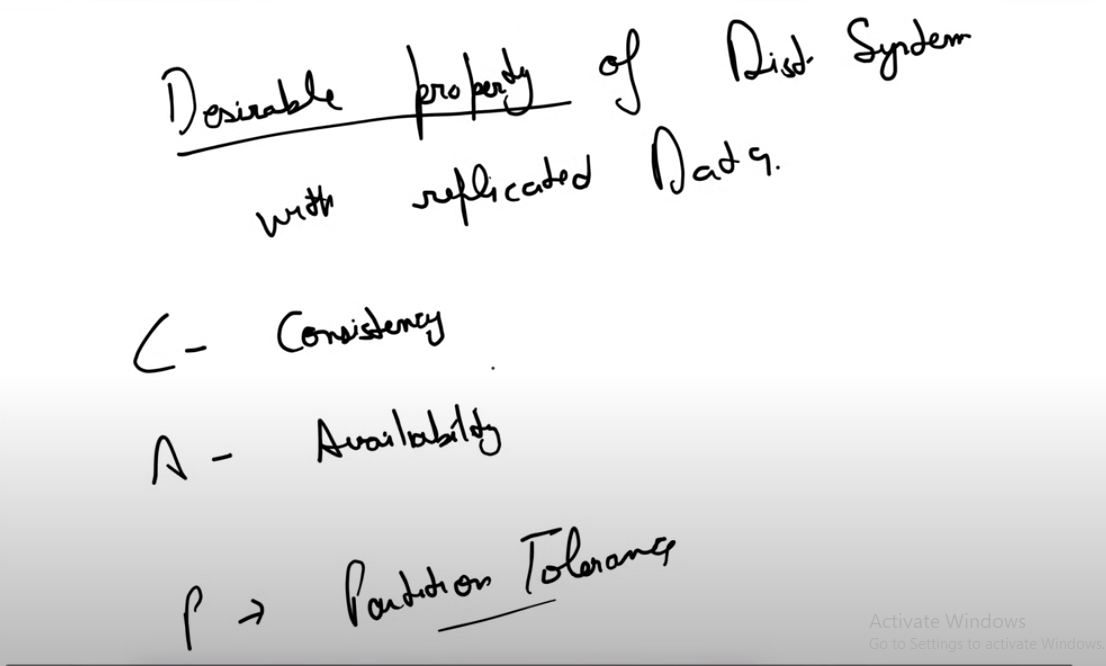 Desirable property of Dist. System
with replicated Data.
C- Consistency
A - Availability
P → Partition Tolerance
Activate Windows
Go to Settings to activate Windows.